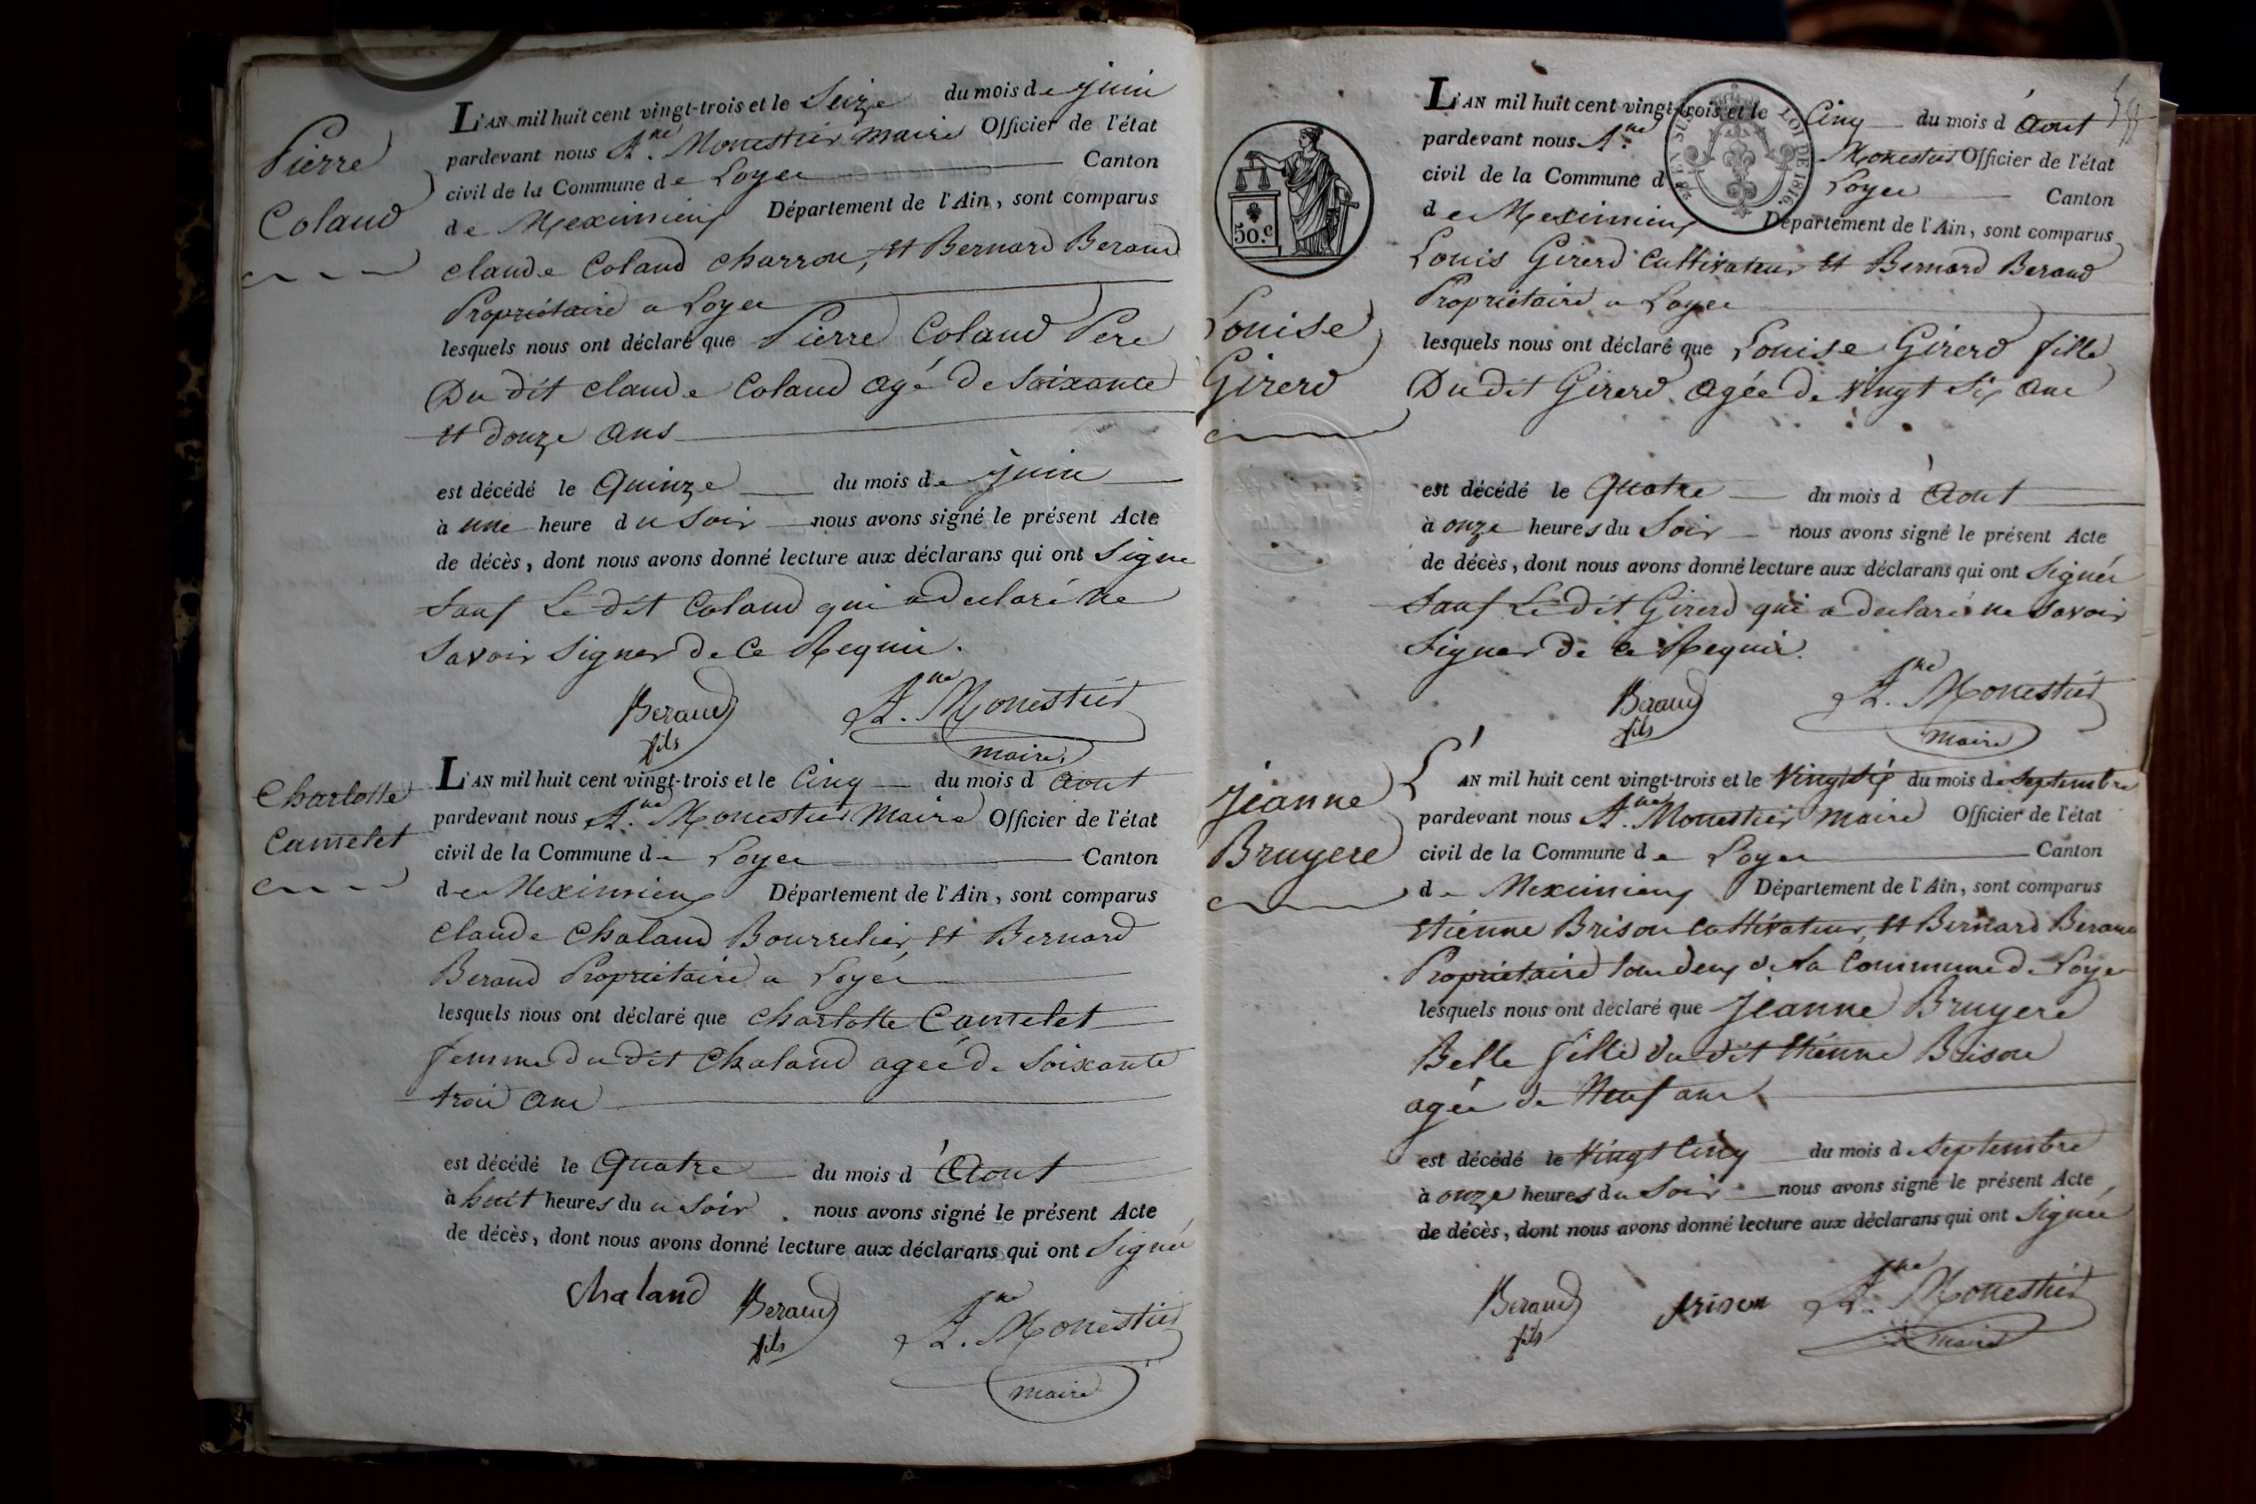 Pierre
Coland
L'AN mil huit cent vingt-trois et le Seize du mois de juin
pardevant nous A.ne Monestier maire Officier de l'état
civil de la Commune de Loyes Canton
de Meximieux Département de l'Ain, sont comparus
claude Coland charron, et Bernard Beraud
Propriétaire a Loyes
lesquels nous ont déclaré que Pierre Coland Pere
Du dit claude Coland agé de Soixante
et douze ans
est décédé le Quinze du mois de juin
à une heure du Soir nous avons signé le présent Acte
de décès, dont nous avons donné lecture aux déclarans qui ont Signé
Sauf Le dit Coland qui a declaré ne
Savoir Signer de ce Requis.
Beraud
fils
A.ne Monestier
maire
Charlotte
Camelet
L'AN mil huit cent vingt-trois et le Cinq du mois d'Aout
pardevant nous A.ne Monestier Maire Officier de l'état
civil de la Commune de Loyes Canton
de Meximieux Département de l'Ain, sont comparus
claude Chaland Bourrelier et Bernard
Beraud Propriétaire a Loyes
lesquels nous ont déclaré que Charlotte Camelet
femme du dit Chaland agée de Soixante
trois ans
est décédé le Quatre du mois d'Aout
à huit heures du Soir. nous avons signé le présent Acte
de décès, dont nous avons donné lecture aux déclarans qui ont Signé
chaland
Beraud
fils
A.ne Monestier
maire
50.c
LOI DE 1816.
Louise
Girerd
L'AN mil huit cent vingt-trois et le Cinq du mois d'Aout
pardevant nous A.ne Monestier Officier de l'état
civil de la Commune d Loyes Canton
de Meximieux Département de l'Ain, sont comparus
Louis Girerd Cultivateur et Bernard Beraud
Propriétaire a Loyes
lesquels nous ont déclaré que Louise Girerd fille
Du dit Girerd agée de vingt Six ans
est décédé le Quatre du mois d'Aout
à onze heures du Soir nous avons signé le présent Acte
de décès, dont nous avons donné lecture aux déclarans qui ont Signés
Sauf Le dit Girerd qui a declaré ne Savoir
Signer de ce Requis.
Beraud
fils
A.ne Monestier
maire
Jeanne
Bruyere
L'AN mil huit cent vingt-trois et le Vingt Six du mois de Septembre
pardevant nous A.ne Monestier maire Officier de l'état
civil de la Commune de Loyes Canton
de Meximieux Département de l'Ain, sont comparus
etienne Brison Cultivateur et Bernard Beraud
Propriétaire tous deux de la Commune de Loyes
lesquels nous ont déclaré que Jeanne Bruyere
Belle fille du dit Etienne Brison
agée de Neuf ans
est décédé le Vingt Cinq du mois de Septembre
à onze heures du Soir nous avons signé le présent Acte
de décès, dont nous avons donné lecture aux déclarans qui ont Signés
Beraud
fils
brison
A.ne Monestier
maire